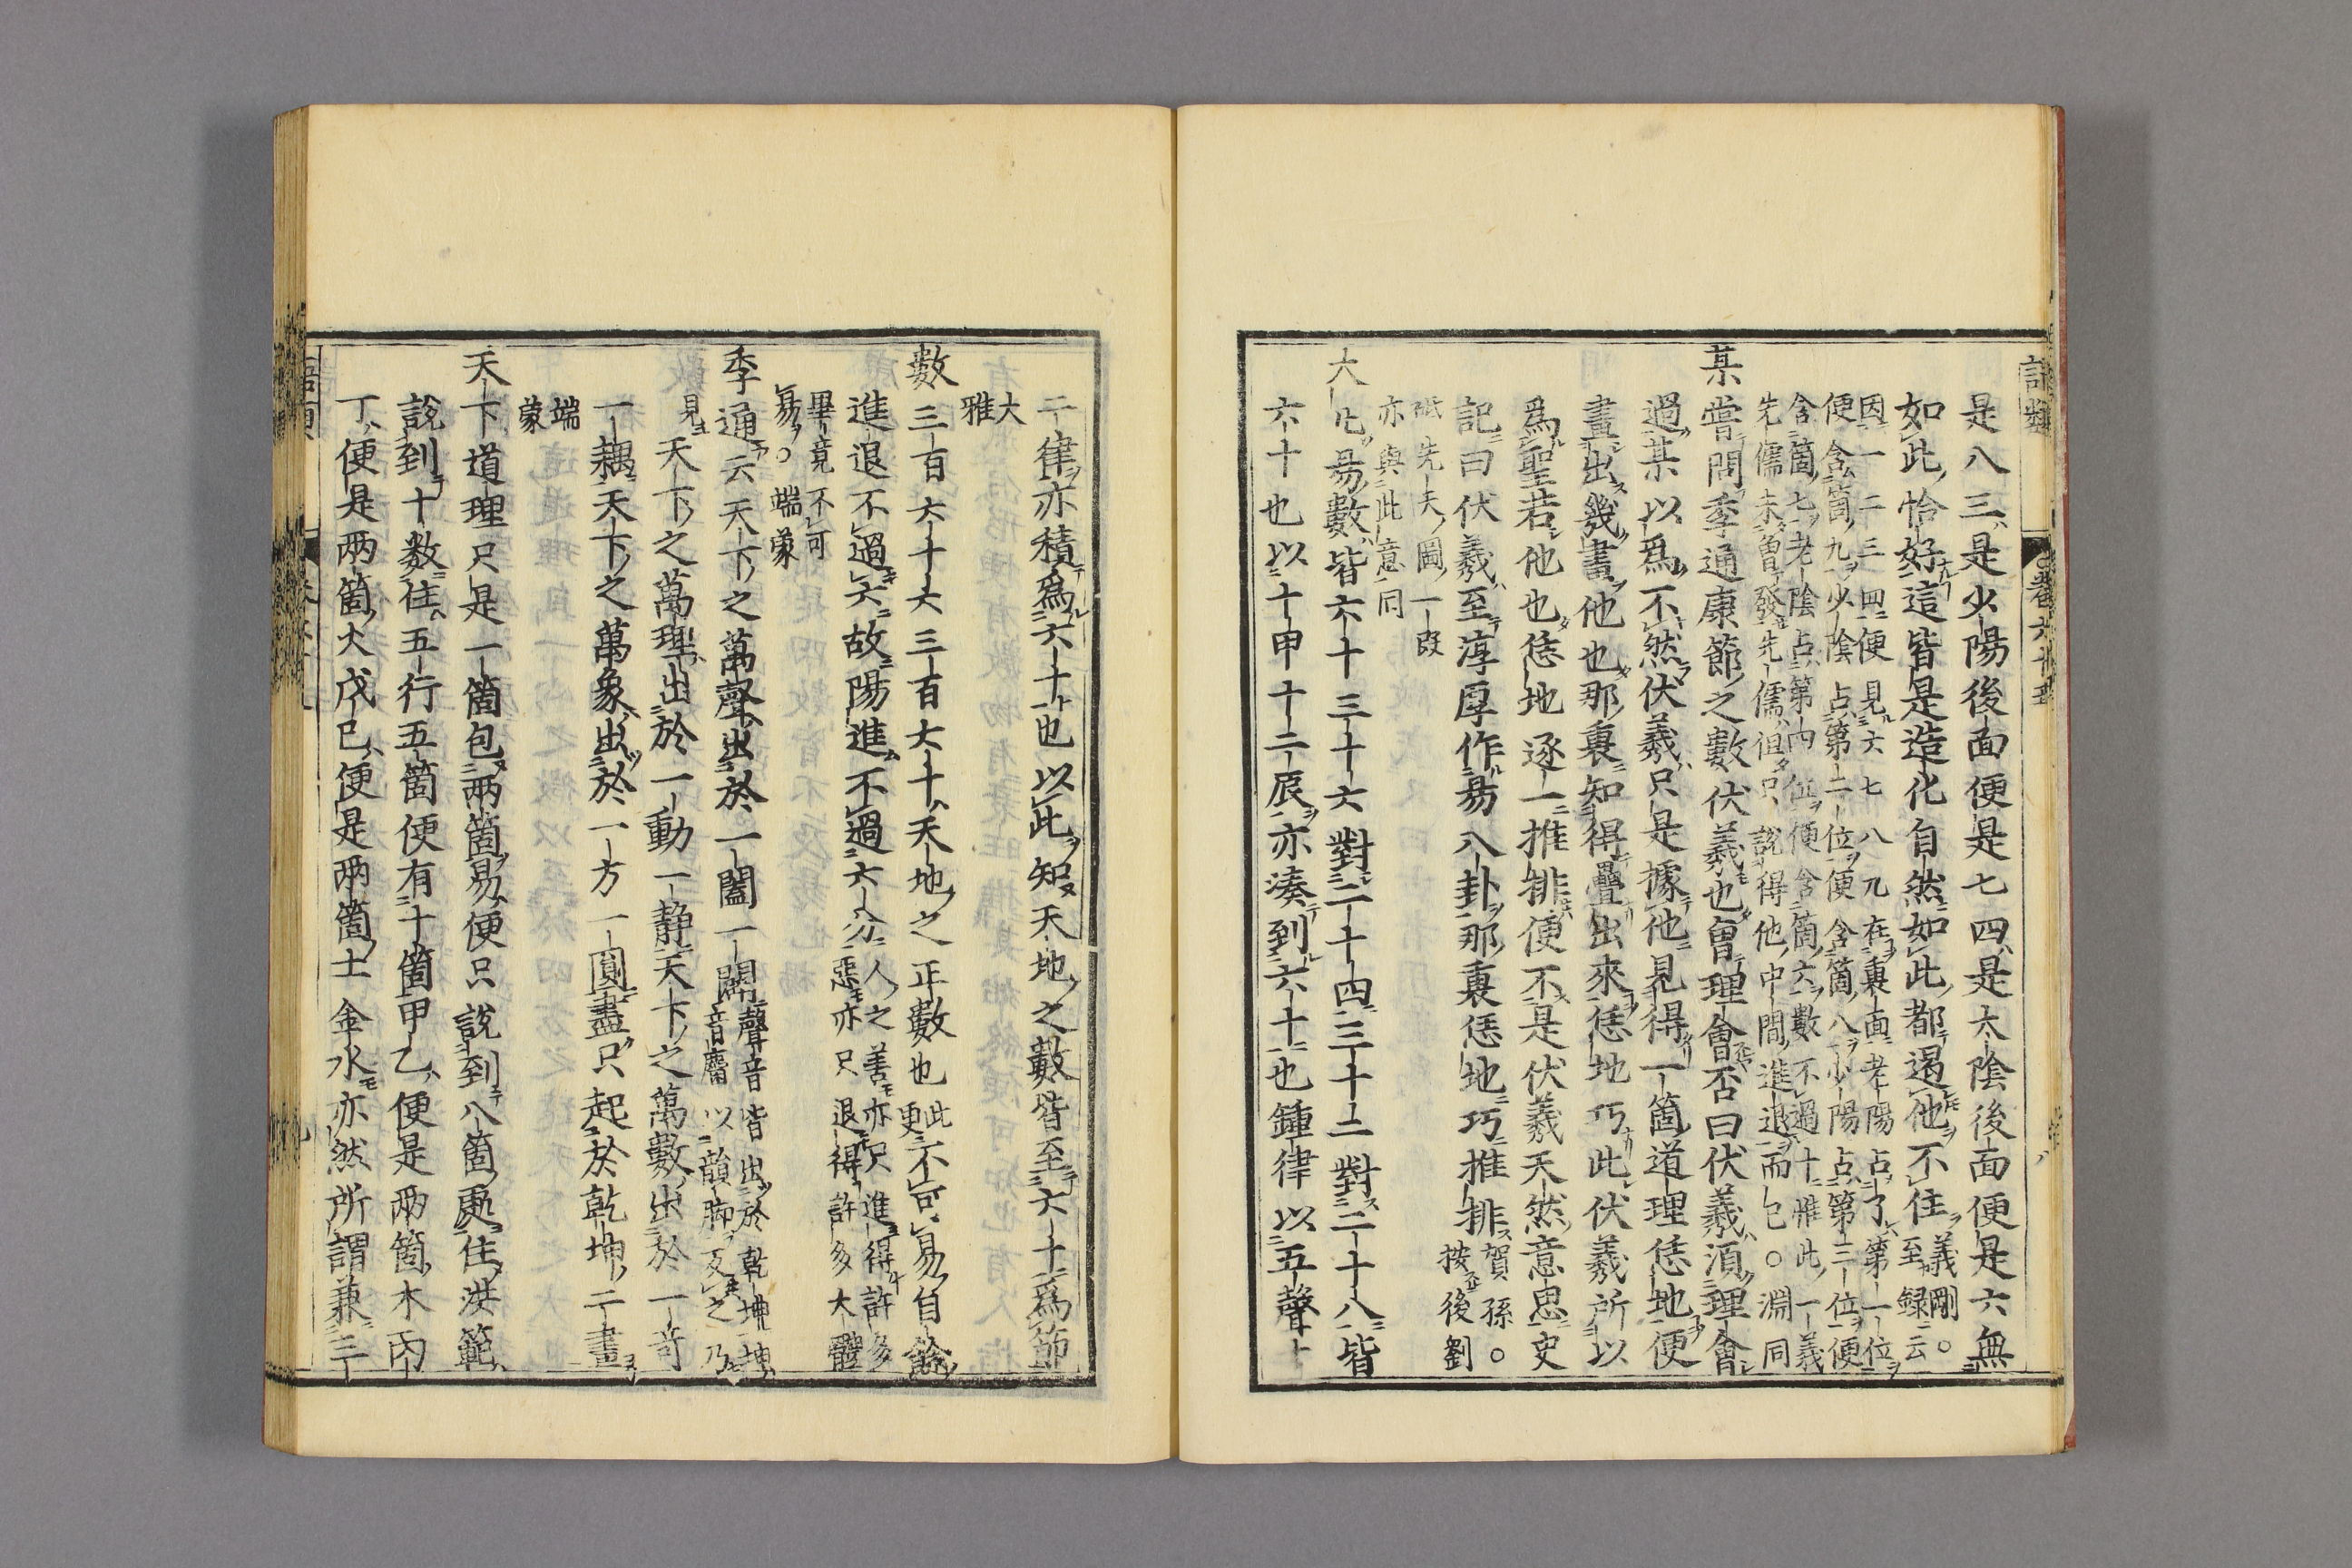 語類 卷六十五
是八三是少陽後面便是七四是太陰後面便是六無
如此恰好這皆是造化自然如此都遏他不住義剛○
至録云
因一二三四便見六七八九在裏面老陽占了第一位
便含箇九少陰占第二位便含箇八少陽占第三位便
含箇七老陰占第四位便含箇六數不過十惟此一義
先儒未曾發先儒但只說得他中間進退而已○淵同
某嘗問季通康節之數伏羲也曾理會否曰伏羲須理會
過某以爲不然伏羲只是據他見得一箇道理恁地便
畫出幾畫他也那裏知得疊出來恁地巧此伏羲所以
爲聖若他也恁地逐一推排便不是伏羲天然意思史
記曰伏羲至淳厚作易八卦那裏恁地巧推排賀孫○
按後劉
砥先天圖一段
亦與此意同
大凡易數皆六十三十六對二十四三十二對二十八皆
六十也以十甲十二辰亦湊到六十也鍾律以五聲十
二律亦積爲六十也以此知天地之數皆至六十爲節
大
雅
數三百六十六三百六十天地之正數也此
更不可易自餘
進退不過六故陽進不過六分人之善亦只進得許多
惡亦只退得許多大體
畢竟不可
易○端蒙
季通云天下之萬聲出於一闔一闢聲音皆出於乾坤坤
音麿以韻脚反之乃
見天下之萬理出於一動一静天下之萬數出於一奇
一耦天下之萬象出於一方一圓盡只起於乾坤二畫
端
蒙
天下道理只是一箇包兩箇易便只說到八箇處住洪範
說到十數住五行五箇便有十箇甲乙便是兩箇木丙
丁便是兩箇火戊己便是兩箇土金水亦然所謂兼三